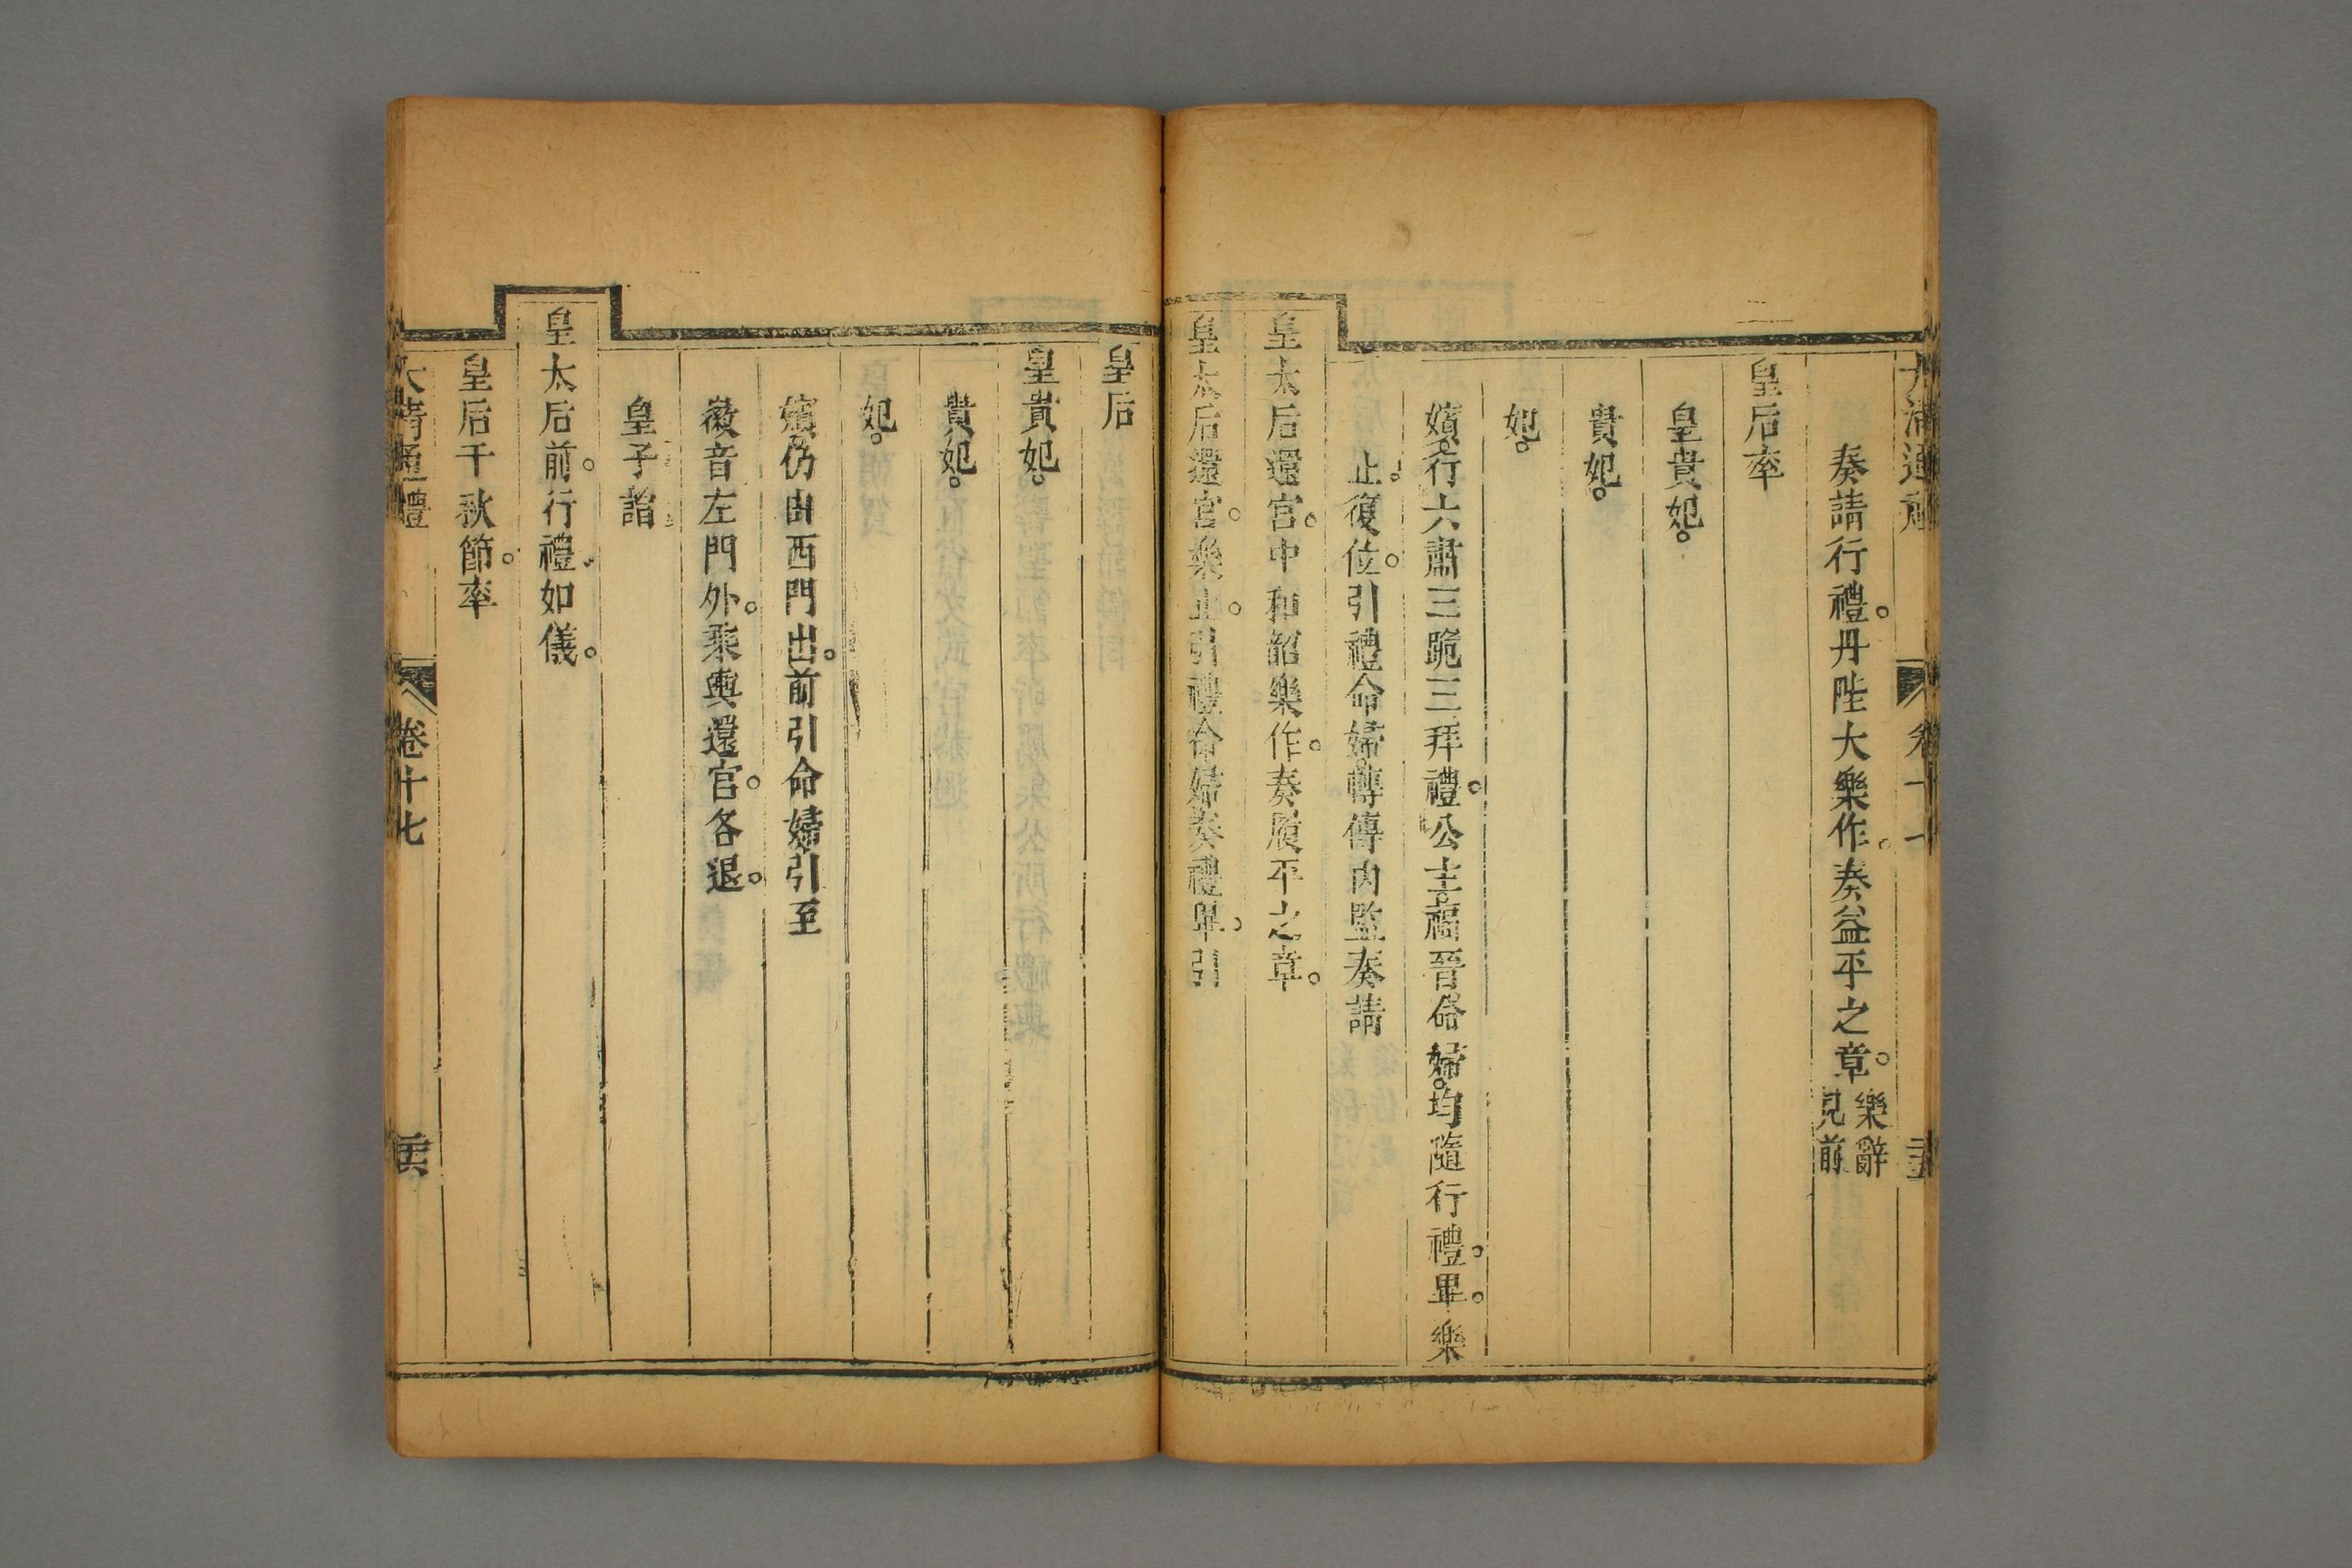 大清通禮 卷十七
奏請行禮。丹陛大樂作。奏益平之章。樂辭見前
皇后率
皇貴妃。
貴妃。
妃。
嬪。行六肅三跪三拜禮。公主。福晉。命婦。均隨行禮。畢。樂
止。復位。引禮命婦。轉傳內監奏請
皇太后還宮。中和韶樂作。奏履平之章。
皇太后還宮。樂止。引禮命婦奏禮畢。引
皇后
皇貴妃。
貴妃。
妃。
嬪。仍由西門出。前引命婦引至
徽音左門外。乘輿還宮。各退。
皇子詣
皇太后前。行禮如儀。
皇后千秋節。率
大清通禮 卷十七